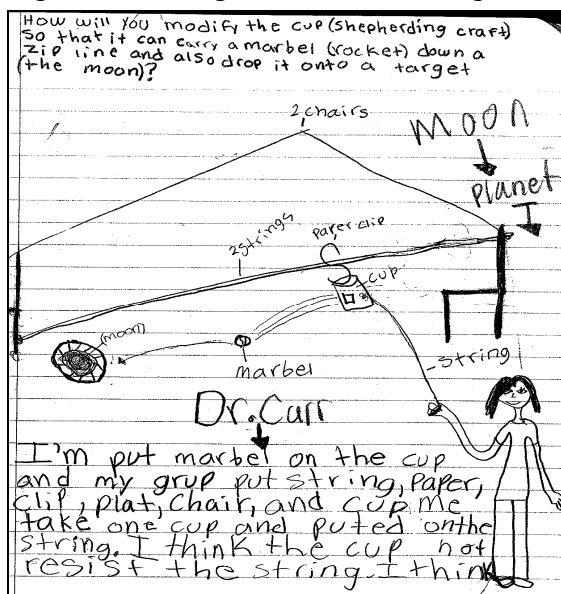 How will you modify the cup (shepherding craft)
so that it can carry a marbel (rocket) down a
zip line and also drop it onto a target
(the moon)?
2 chairs
Moon
planet
2 strings
paper clip
cup
moon
marbel
string
Dr. Carr
I'm put marbel on the cup
and my grup put string, paper,
clip, plat, chair, and cup me
take one cup and puted onthe
string. I think the cup not
resist the string. I think